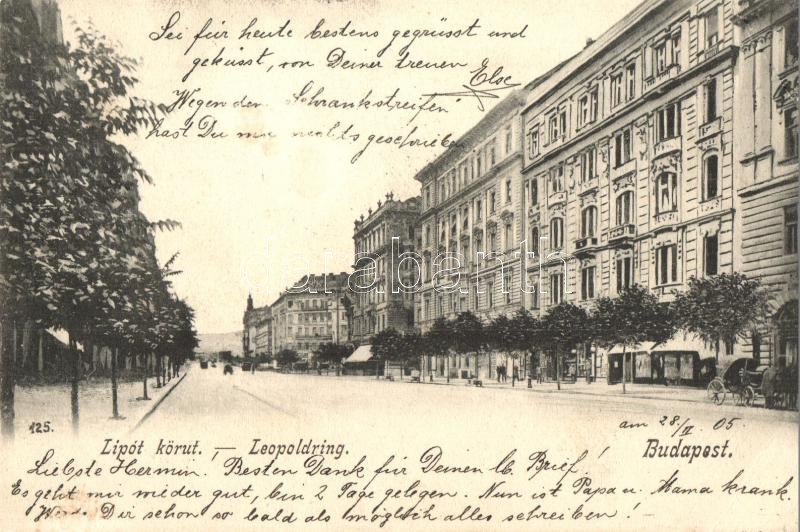 Sei für heute bestens gegrüsst und
geküsst, von Deiner treuen Else
Wegen den Schrankstreifen
hast Du mir nichts geschrieben
arabanth
125.
Lipót körut. — Leopoldring.
am 28/II 05
Budapest.
Liebste Hermin! Besten Dank für Deinen lb. Brief!
Es geht mir wieder gut, bin 2 Tage gelegen. Nun ist Papa u. Mama krank.
Werde Dir schon so bald als möglich alles schreiben!